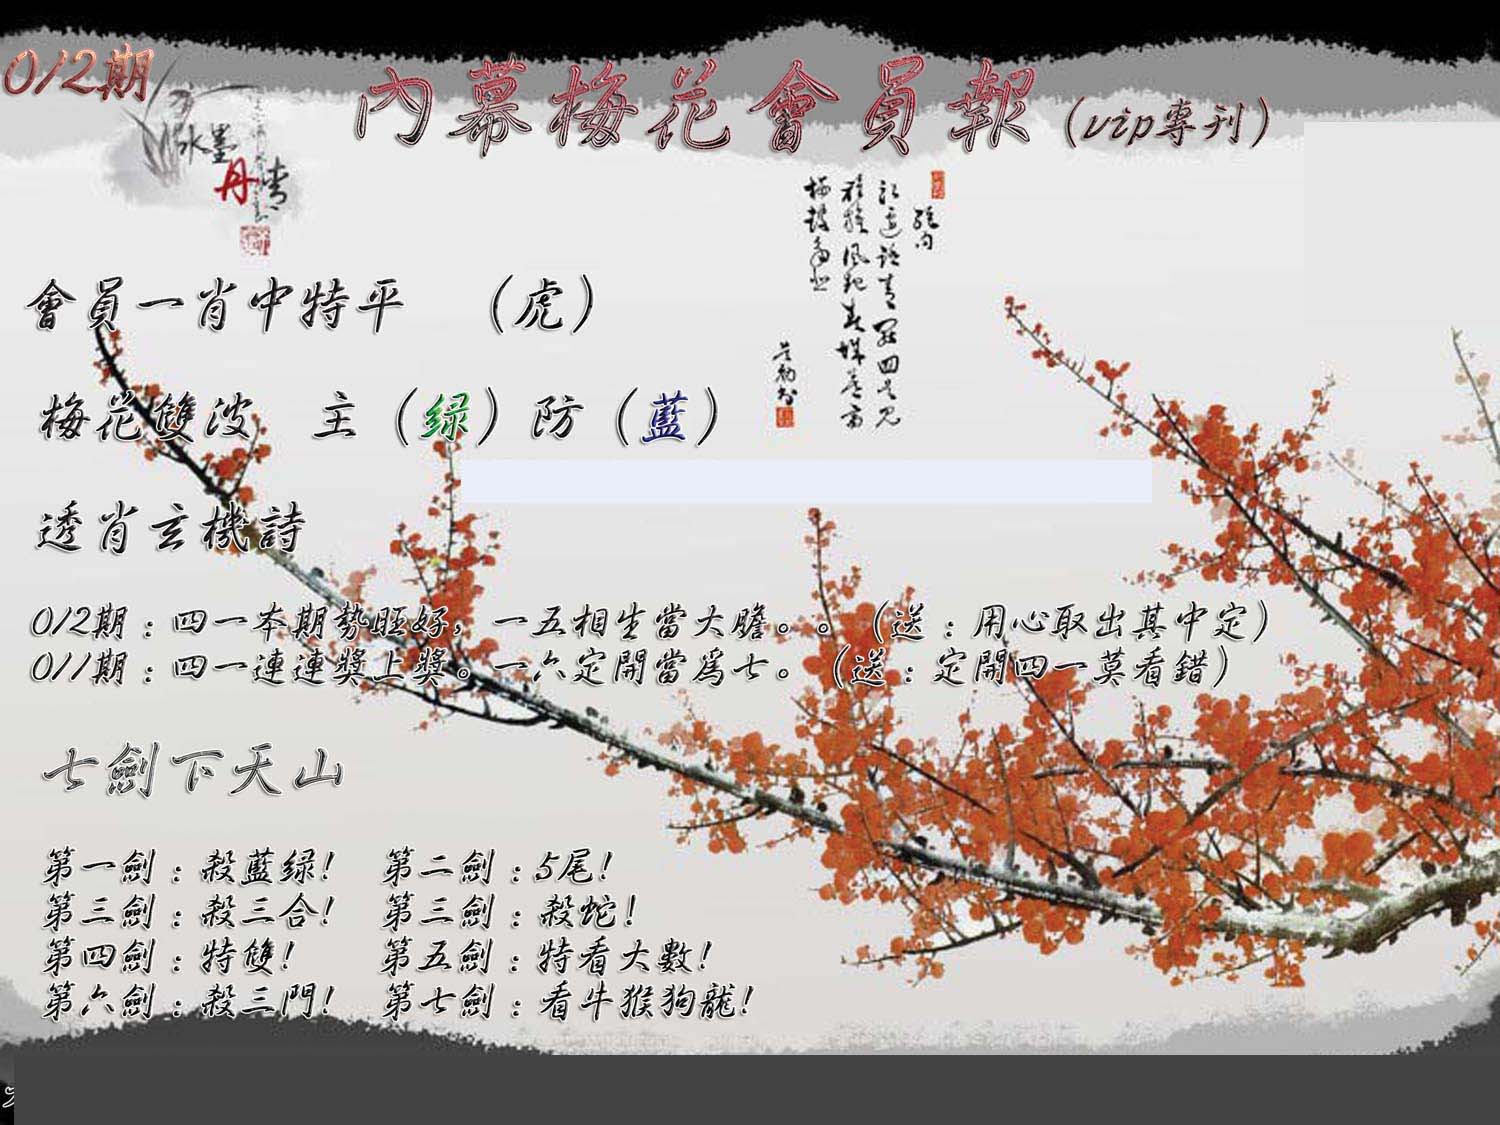 012期
內幕梅花會員報（vip專刊）
水墨
丹青
會員一肖中特平 （虎）
梅花雙波 主（绿）防（藍）
透肖玄機詩
012期：四一本期勢旺好，一五相生當大瞻。。（送：用心取出其中定）
011期：四一連連獎上獎。一六定開當爲七。（送：定開四一莫看錯）
七劍下天山
第一劍：殺藍绿！ 第二劍：5尾！
第三劍：殺三合！ 第三劍：殺蛇！
第四劍：特雙！ 第五劍：特看大數！
第六劍：殺三門！ 第七劍：看牛猴狗龍！